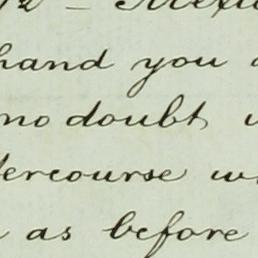 hand you
no doubt,
tercourse
as before